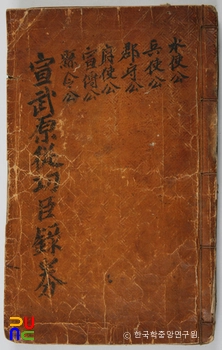 水使公
兵使公
郡守公
府使公
宣傳公
縣令公
宣武源從功臣錄券
© 한국학중앙연구원